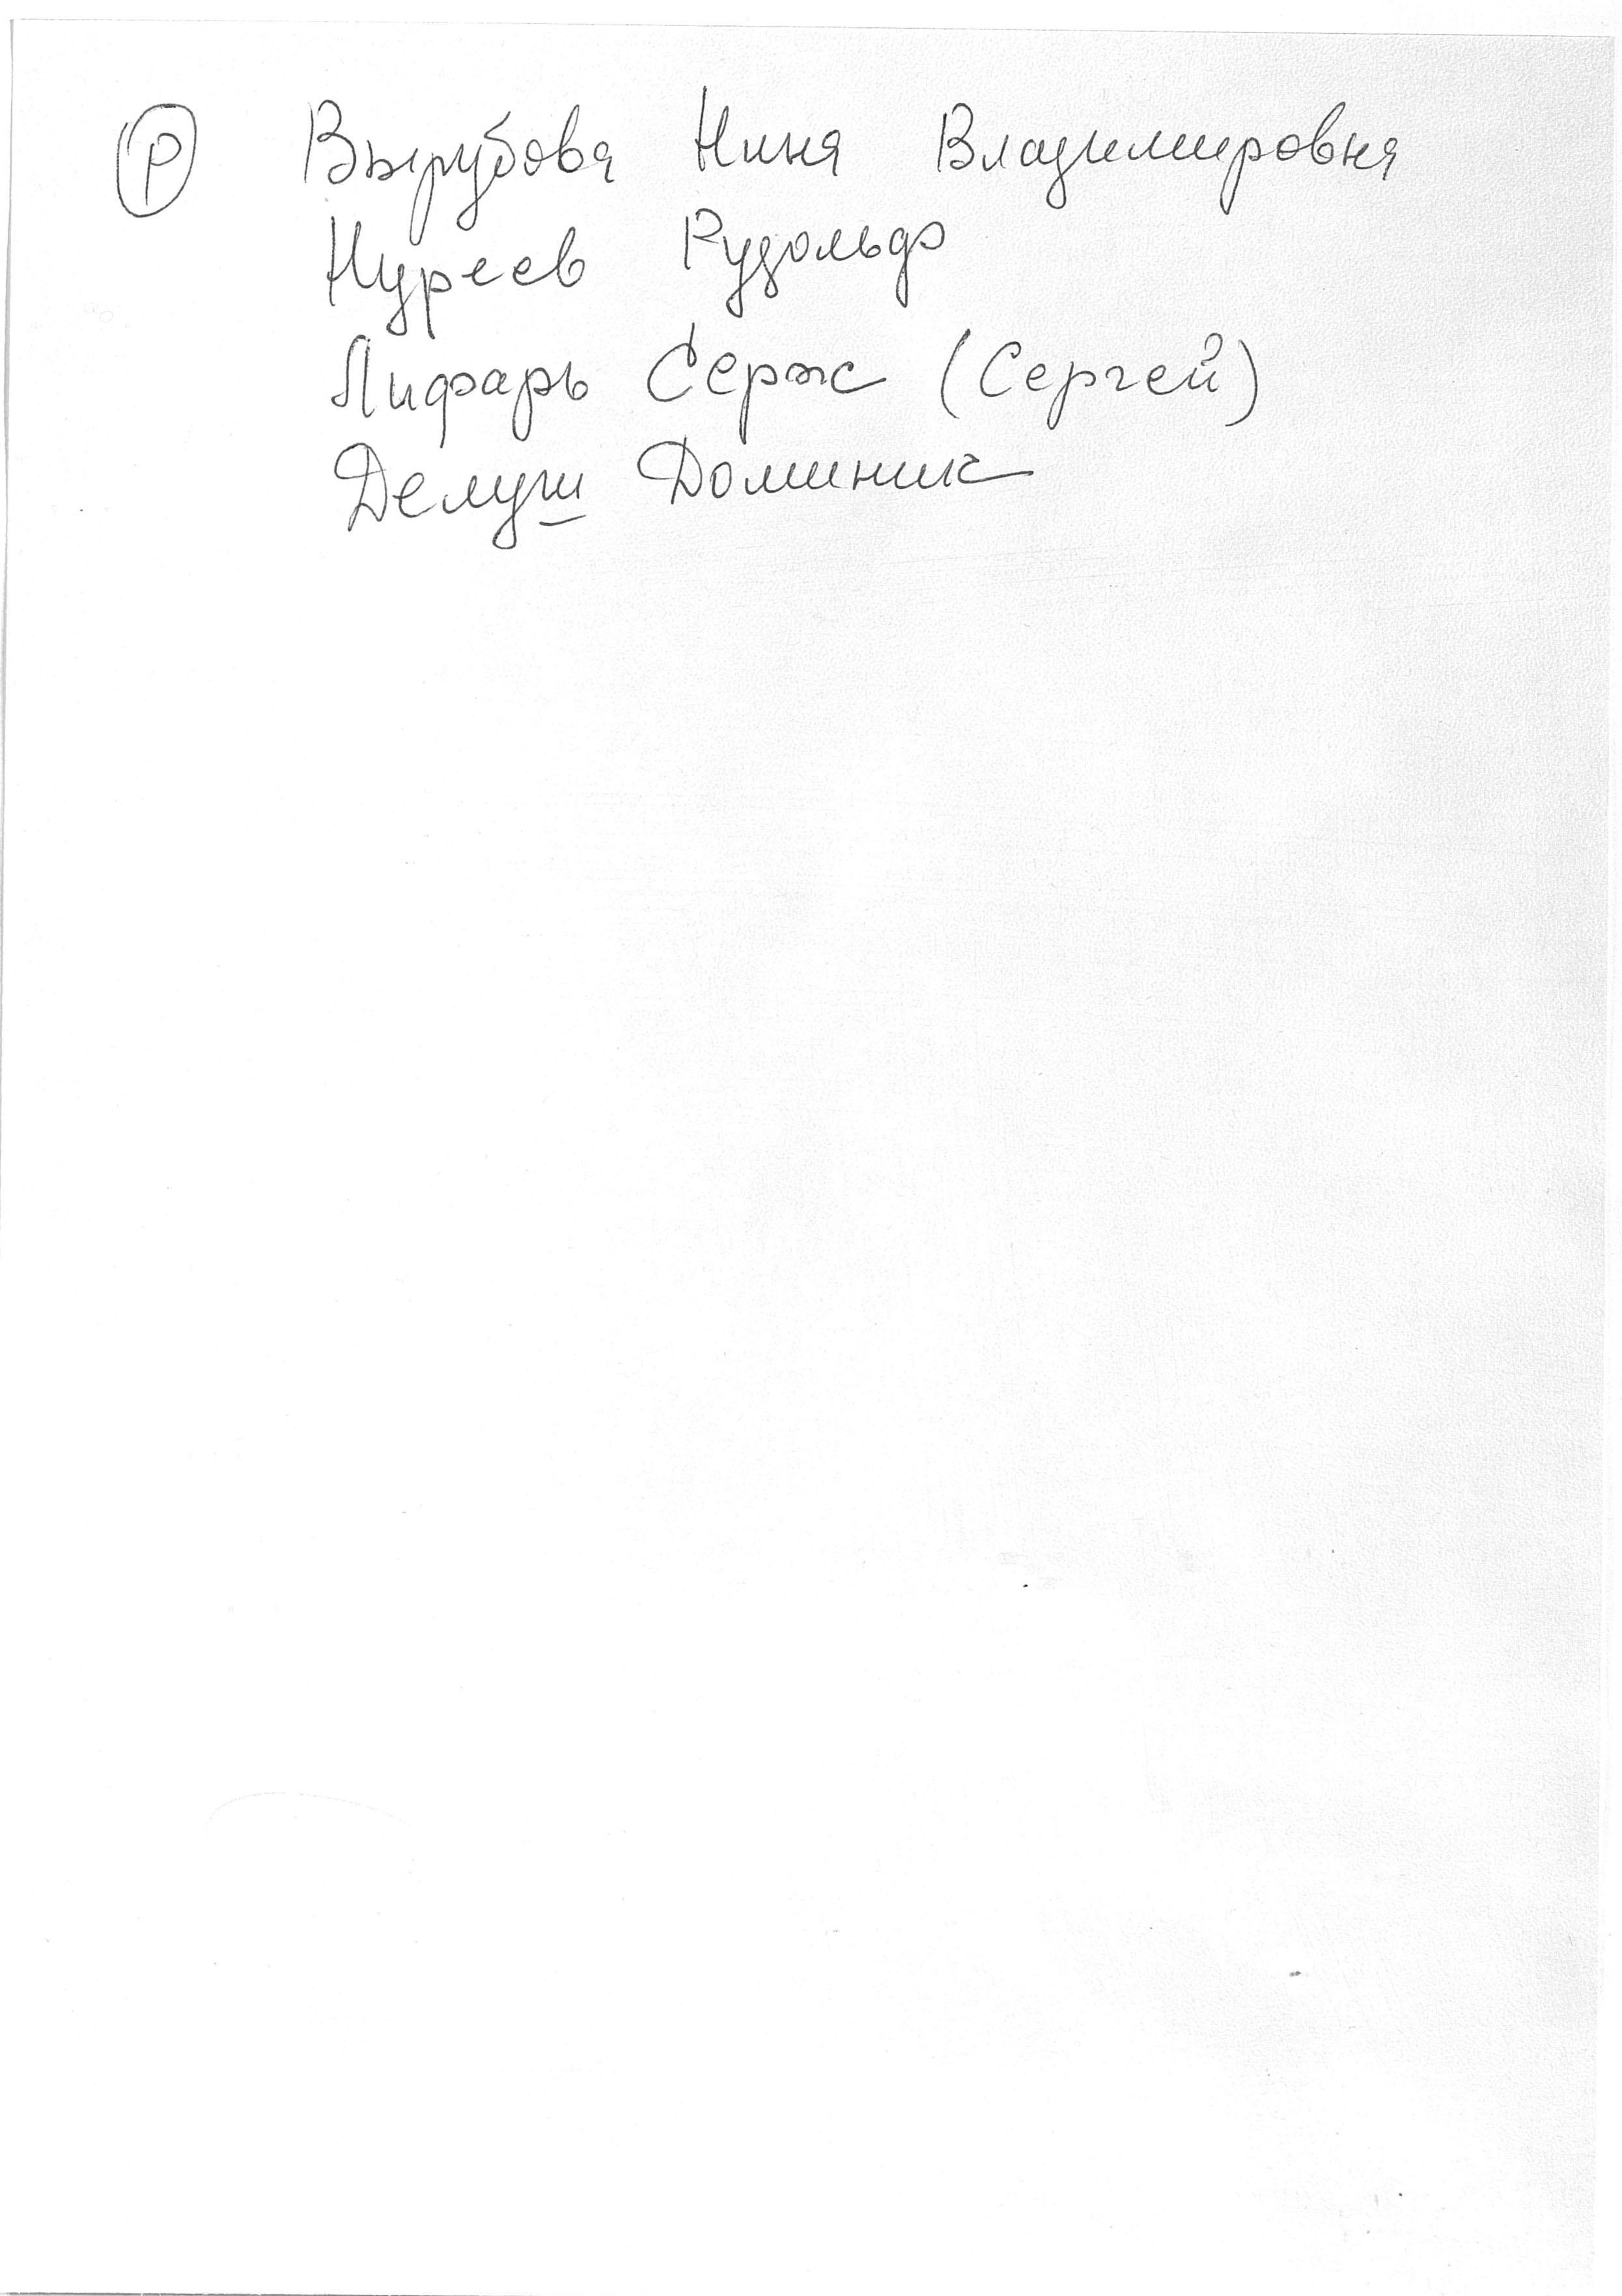 Р Вырубова Нина Владимировна
Нуреев Рудольф
Лифарь Серж (Сергей)
Делуш Доминик